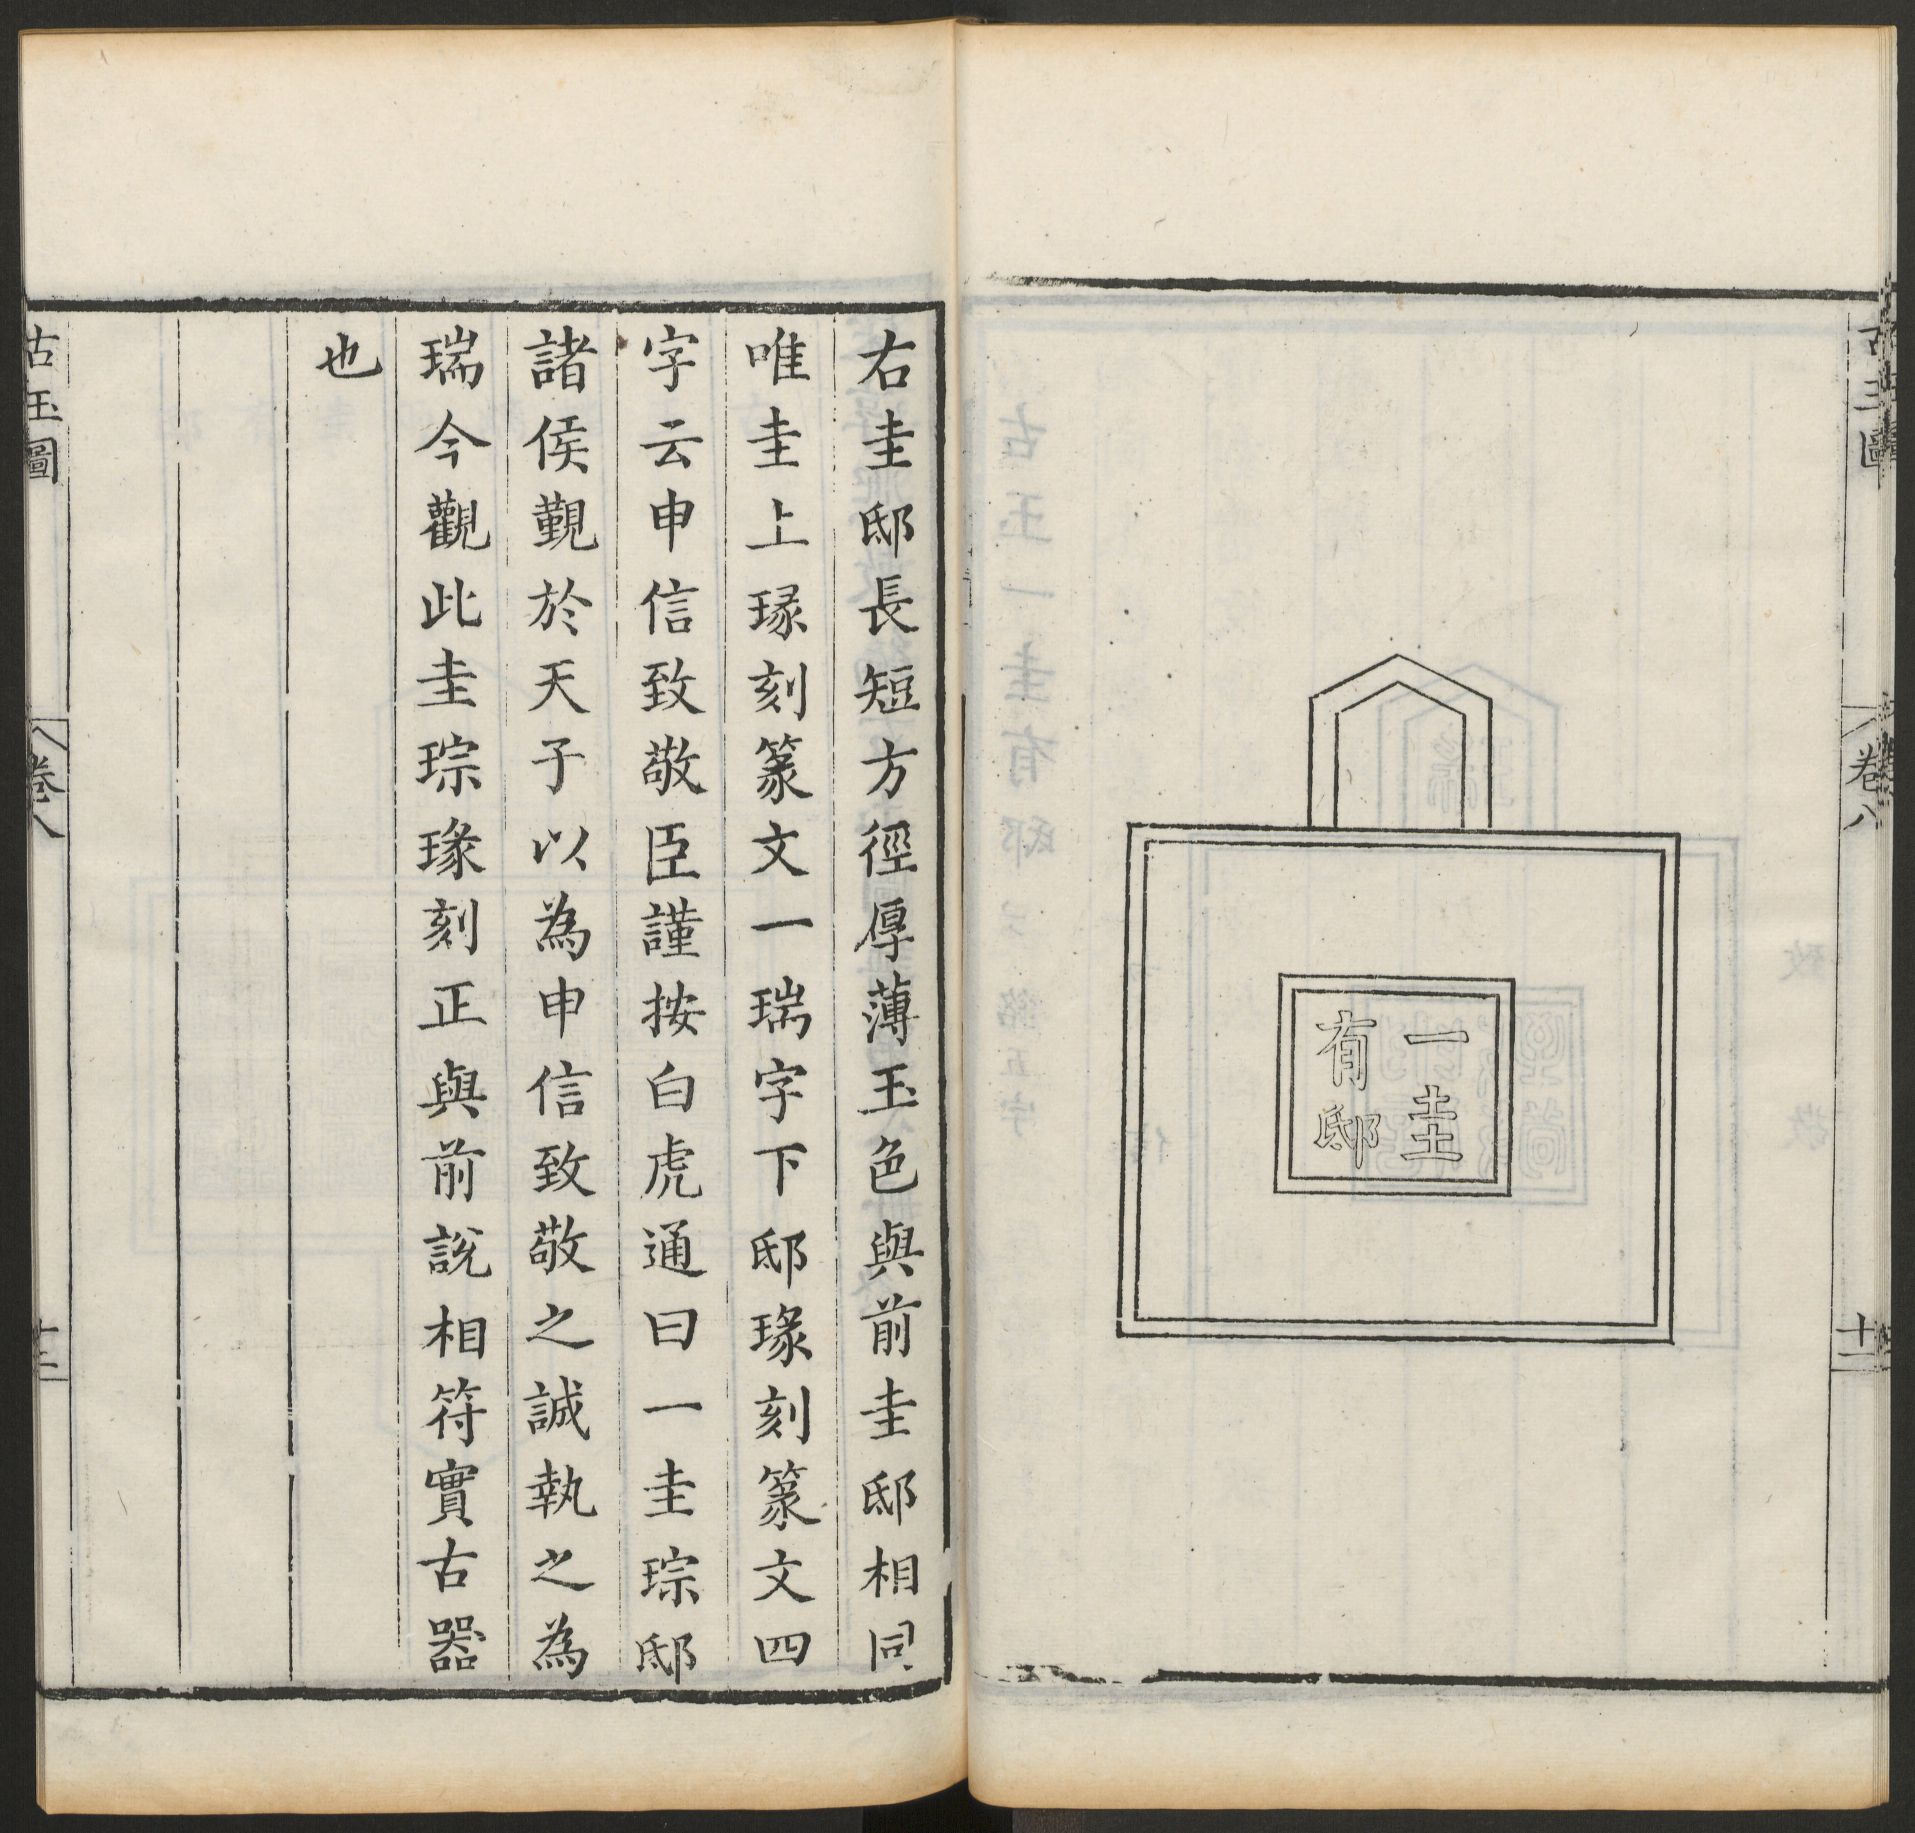 古玉圖
卷八
十一
一圭
有邸
右圭邸長短方徑厚薄玉色與前圭邸相同
唯圭上瑑刻篆文一瑞字下邸瑑刻篆文四
字云申信致敬臣謹按白虎通曰一圭琮邸
諸侯覲於天子以為申信致敬之誠執之為
瑞今觀此圭琮瑑刻正與前說相符實古器
也
古玉圖
卷八
十二